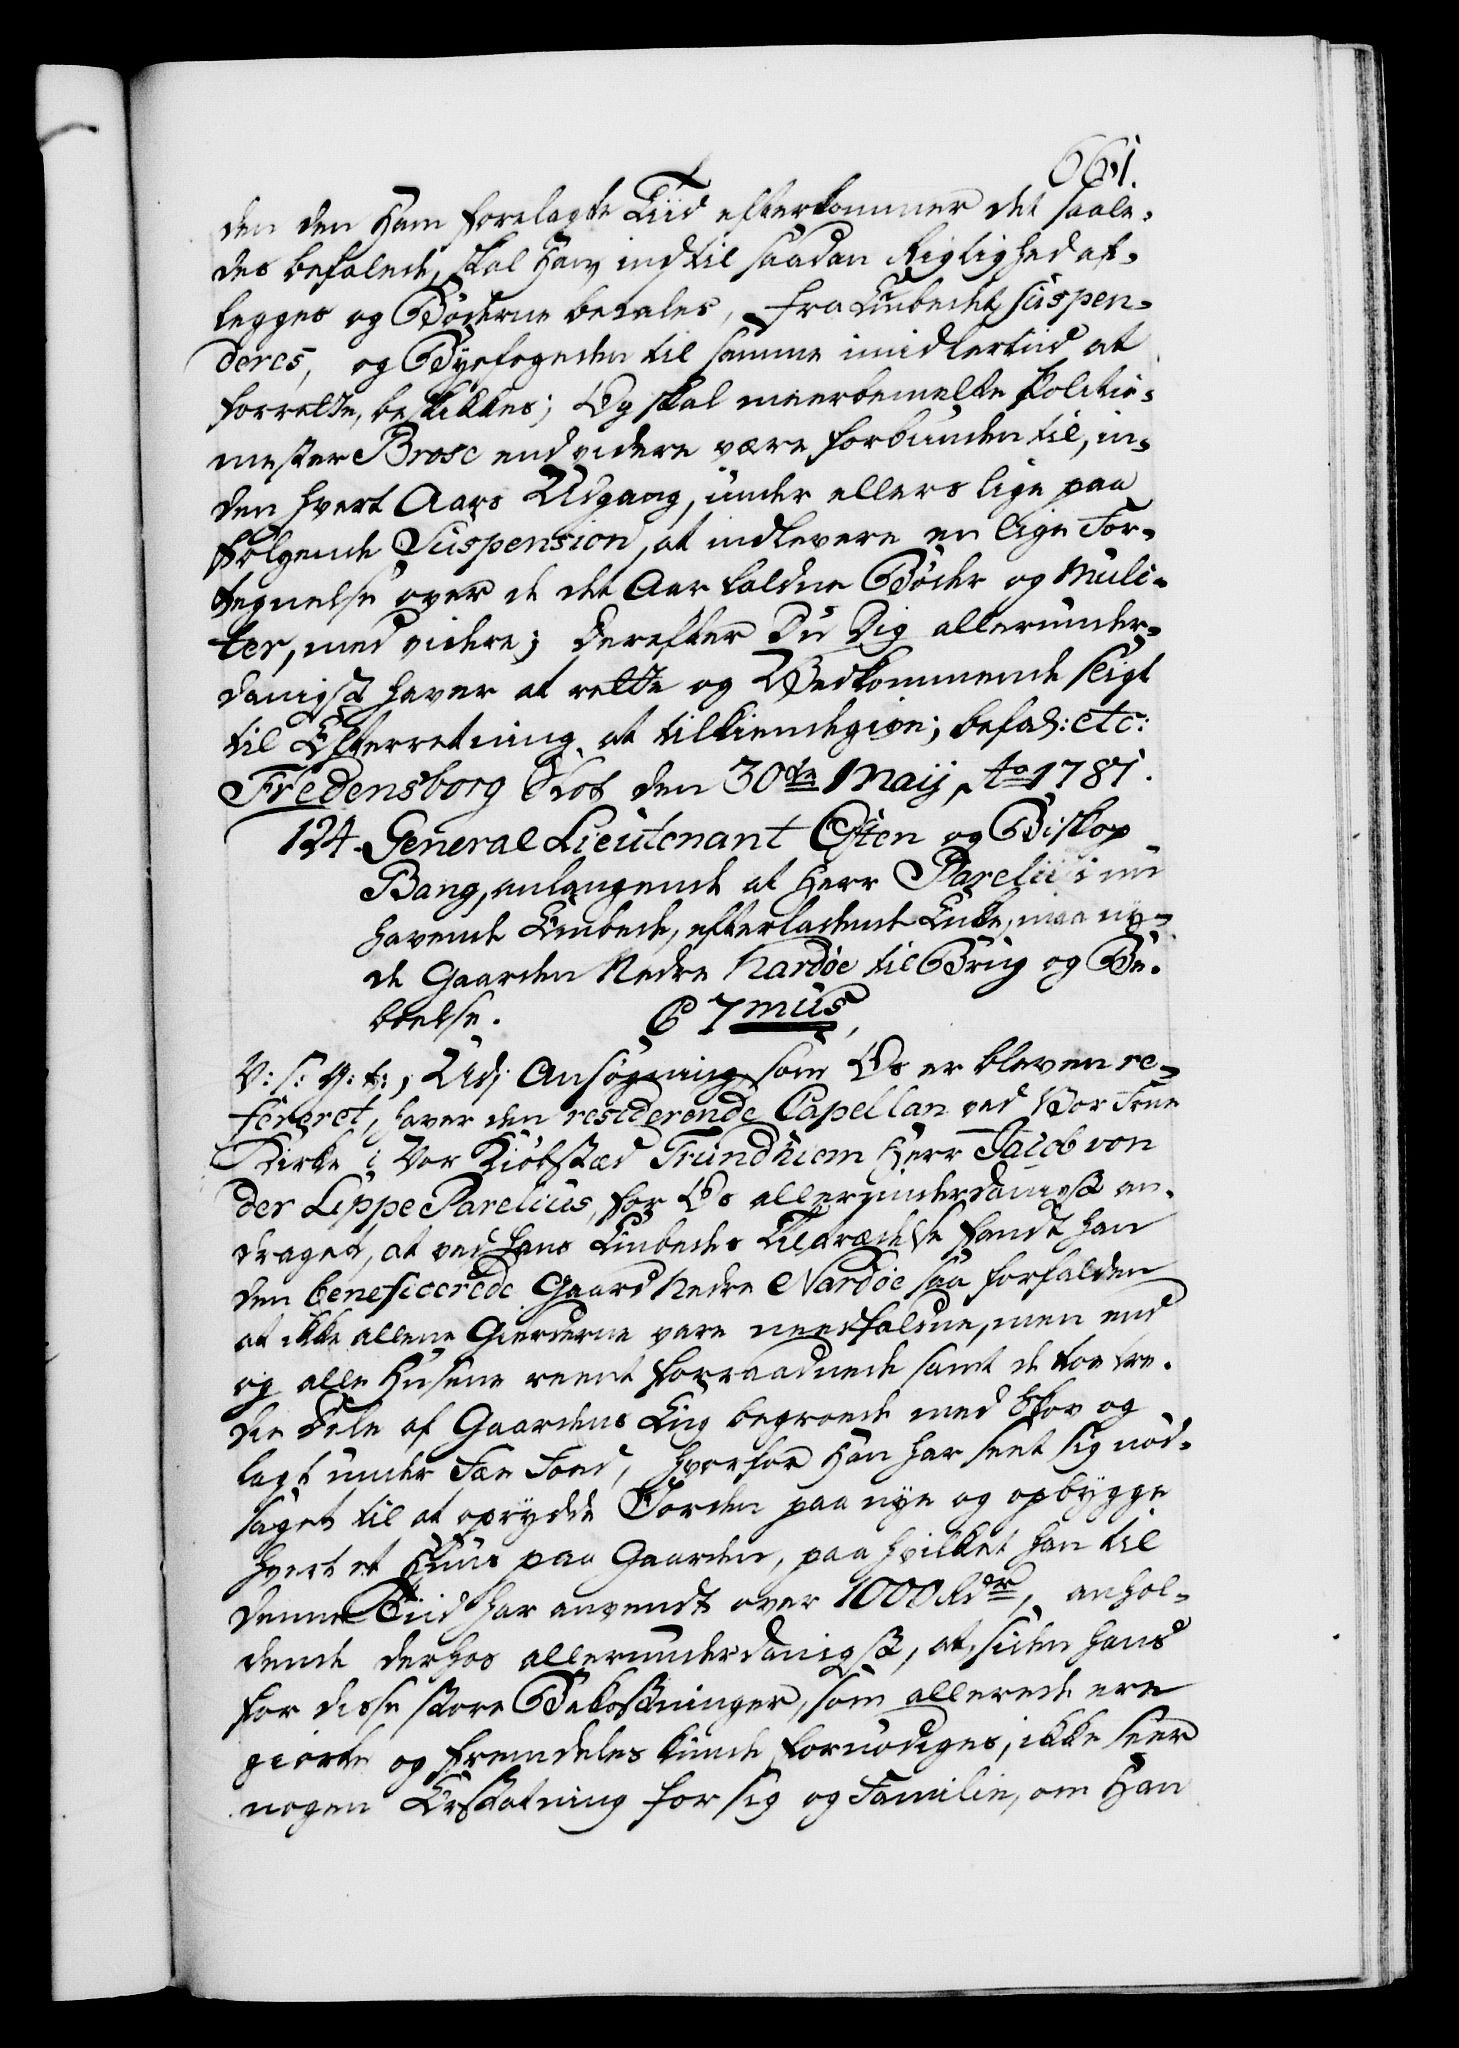 661.
den den Ham forelagte Tiid efterkommer det saale-
des befalede, skal Han, indtil saadan Rigtighed af-
legges og Bøderne betales, fra Embedet suspen-
deres, og Byefogden til samme imidlertiid at
forrette, beskikkes; Og skal meerbemelte Politie-
mester Brose endvidere være forbunden til, in-
den hvert Aars Udgang, under ellers lige paa
følgende Suspension, at indlevere en lige For-
tegnelse over de det Aar faldne Bøder og Mulc-
ter, med videre; Derefter Du Dig allerunder-
danigst haver at rette og Vedkommende sligt
til Efterretning at tilkiendegive; befal: etc:
Fredensborg Slot den 30te Maij, Ao 1781.
124. General Lieutenant Osten og Biskop
Bang, anlangende at Herr Parelii i nu
havende Embede, efterladende Enke, maa ny-
de Gaarden Nedre Nardøe til Brug og Be-
boelse. C 7mus,
V: S: G: t:, Udj Ansøgning, som Os er bleven re-
fereret, haver den residerende Capellan ved Vor Frue
Kirke i Vor Kiøbstæd Trundhiem Herr Jacob von
der Lippe Parelius, for Os allerunderdanigst an-
draget, at ved hans Embedes Tiltrædelse fandt han
den beneficerede Gaard Nedre Nardøe saa forfalden
at ikke allene Gierderne vare neerfaldne, men end
og alle Husene reent forraadnede samt de toe tre-
die Dele af Gaardens Eng begroede med Skov og
lagt under Fæe Foed, hvorfor Han har seet sig nød-
saget til at oprydde Jorden paa nye og opbygge
hvert et Huus paa Gaarden, paa hvilket han til
denne Tiid har anvendt over 1000 Rdr, anhol-
dende derhos allerunderdanigst, at, siden hans
for disse store Bekostninger, som allerede ere
giorte og fremdeles kunde fornødiges, ikke seer
nogen Erstatning for sig og Familie, om Han